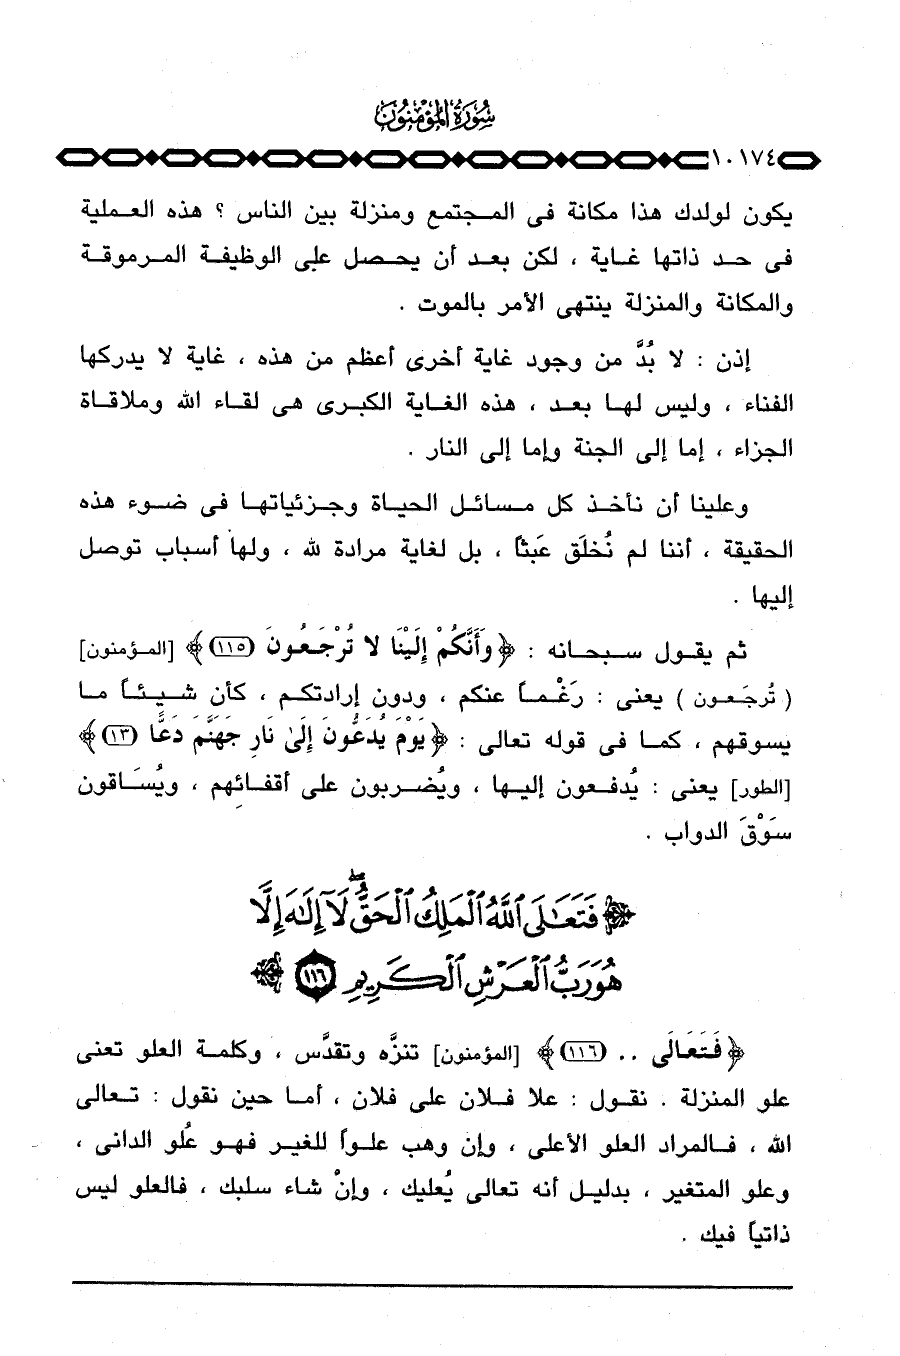 سورة المؤمنون
١٠١٧٤
يكون لولدك هذا مكانة فى المجتمع ومنزلة بين الناس ؟ هذه العملية
فى حد ذاتها غاية ، لكن بعد أن يحصل على الوظيفة المرموقة
والمكانة والمنزلة ينتهى الأمر بالموت .
إذن : لا بُدَّ من وجود غاية أخرى أعظم من هذه ، غاية لا يدركها
الفناء ، وليس لها بعد ، هذه الغاية الكبرى هى لقاء الله وملاقاة
الجزاء ، إما إلى الجنة وإما إلى النار .
وعلينا أن نأخذ كل مسائل الحياة وجزئياتها فى ضوء هذه
الحقيقة ، أننا لم نُخلَق عَبثاً ، بل لغاية مرادة لله ، ولها أسباب توصل
إليها .
ثم يقول سبحانه : ﴿وَأَنَّكُمْ إِلَيْنَا لا تُرْجَعُونَ (١١٥)﴾ [المؤمنون]
( تُرجَعون ) يعنى : رَغْماً عنكم ، ودون إرادتكم ، كأن شيئاً ما
يسوقهم ، كما فى قوله تعالى : ﴿يَوْمَ يُدَعُّونَ إِلَىٰ نَارِ جَهَنَّمَ دَعًّا (١٣)﴾
[الطور] يعنى : يُدفعون إليها ، ويُضربون على أقفائهم ، ويُسَاقون
سَوْقَ الدواب .
﴿فَتَعَٰلَى ٱللَّهُ ٱلْمَلِكُ ٱلْحَقُّ ۖ لَآ إِلَٰهَ إِلَّا
هُوَ رَبُّ ٱلْعَرْشِ ٱلْكَرِيمِ ١١٦﴾
﴿فَتَعَالَى .. (١١٦)﴾ [المؤمنون] تنزَّه وتقدَّس ، وكلمة العلو تعنى
علو المنزلة . نقول : علا فلان على فلان ، أما حين نقول : تعالى
الله ، فالمراد العلو الأعلى ، وإن وهب علواً للغير فهو عُلو الدانى ،
وعلو المتغير ، بدليل أنه تعالى يُعليك ، وإنْ شاء سلبك ، فالعلو ليس
ذاتياً فيك .